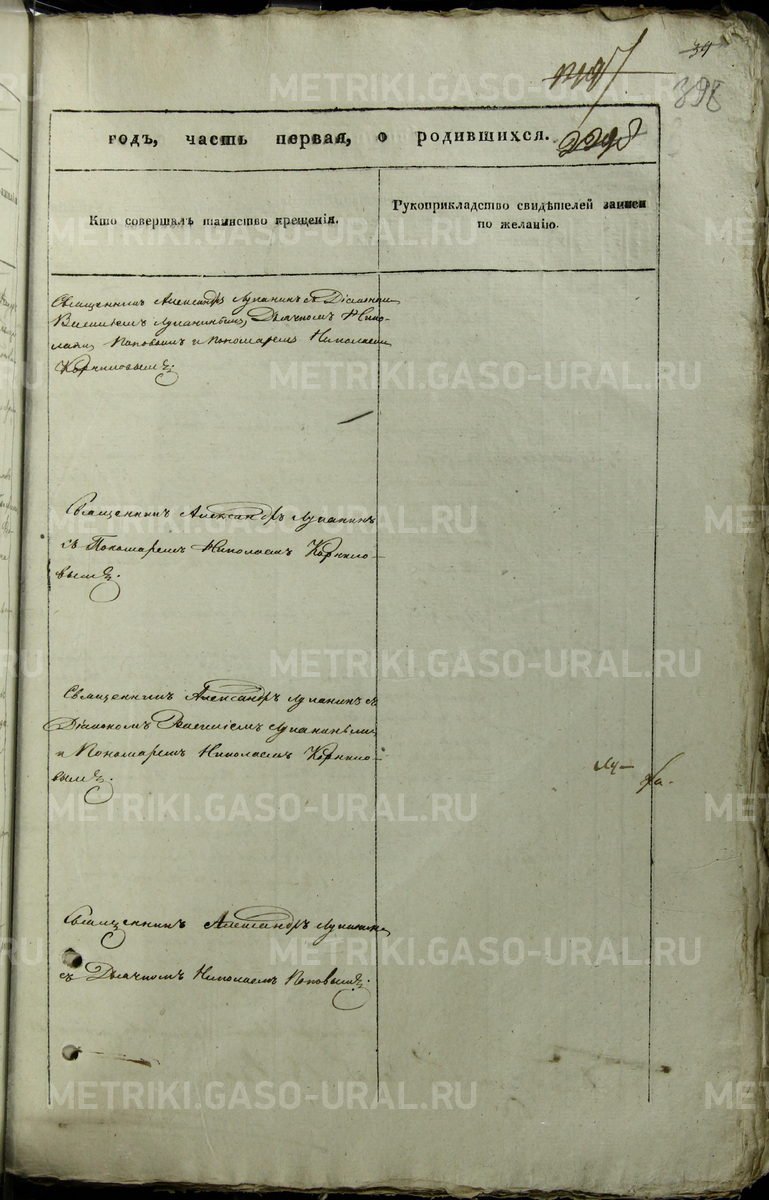 34
398
2298
годъ, часть первая, о родившихся.
Кто совершалъ таинство крещенія.
Рукоприкладство свидѣтелей записи
по желанію.
Священникъ Александръ Лупанинъ съ Діакономъ
Василіемъ Лупанинымъ, Дьячкомъ Нико-
лаемъ Поповымъ и Пономаремъ Николаемъ
Корниловымъ.
Священникъ Александръ Лупанинъ
съ Пономаремъ Николаемъ Корнило-
вымъ.
Священникъ Александръ Лупанинъ съ
Діакономъ Василіемъ Лупанинымъ
и Пономаремъ Николаемъ Корнило-
вымъ.
Священникъ Александръ Лупанинъ
съ Дьячкомъ Николаемъ Поповымъ.
METRIKI.GASO-URAL.RU